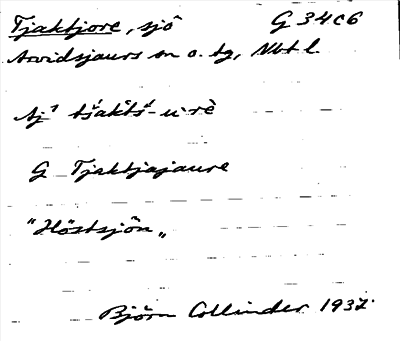 Tjaktjore, sjö G 34 c 6
Arvidsjaurs sn o. tg, Nbt l.
Aj tšakt̕š-u·rè
G Tjaktjajaure
"Höstsjön„
Björn Collinder 1937.